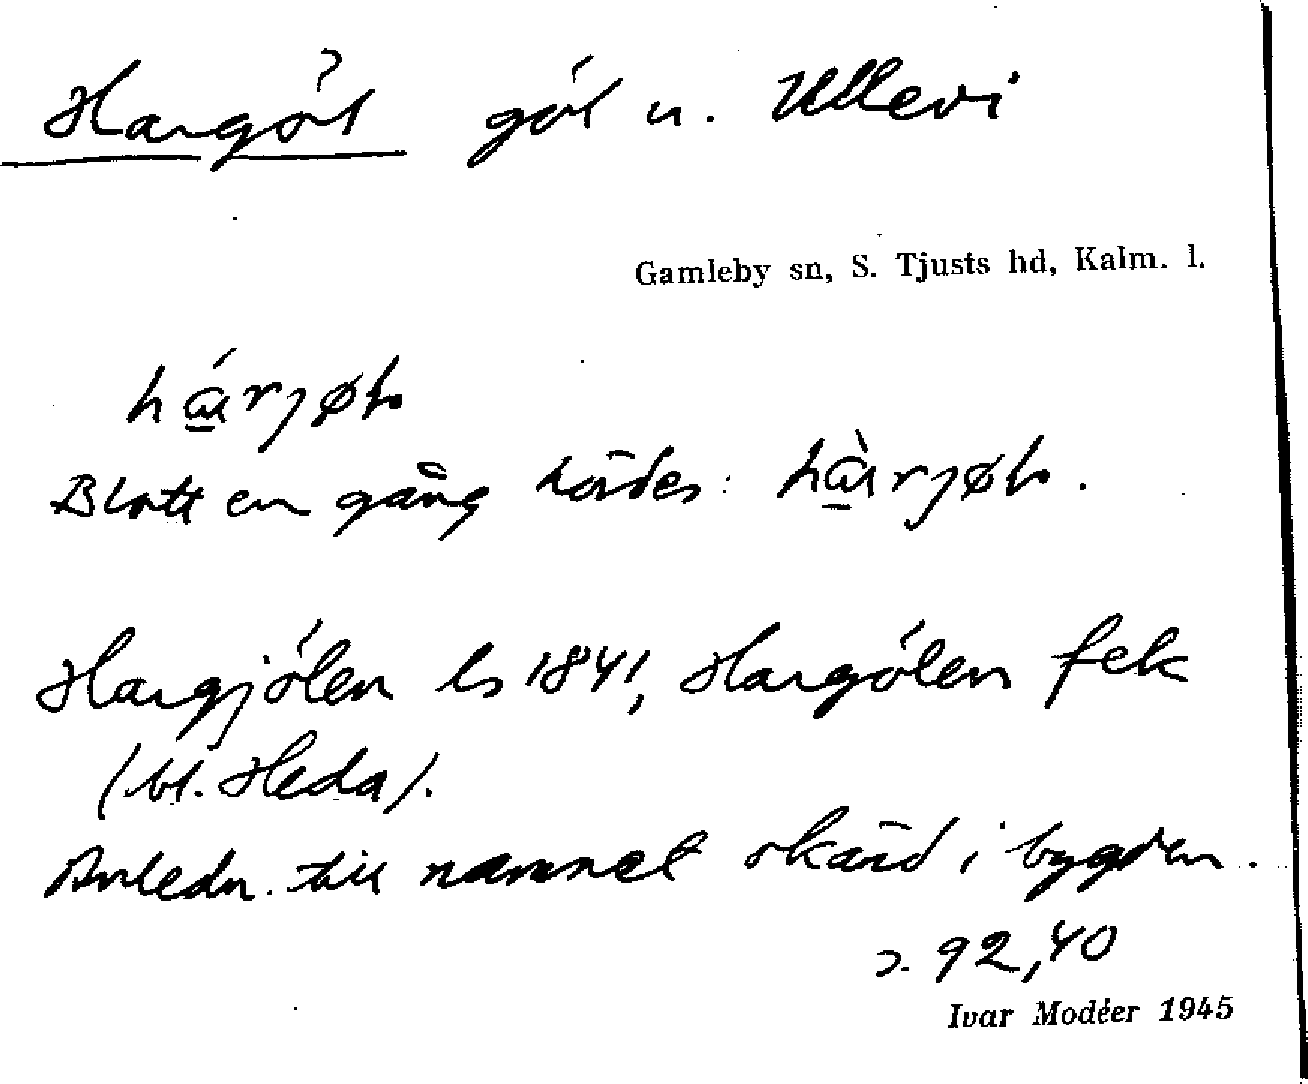 Hargöl göl u. Ullevi
Gamleby sn, S. Tjusts hd, Kalm. l.
Blott en gång hördes:
Hargjölen ls 1841, Hargölen fek
(bl. Heda).
Anledn. till namnet okänd i bygden.
92,40
Ivar Modéer 1945